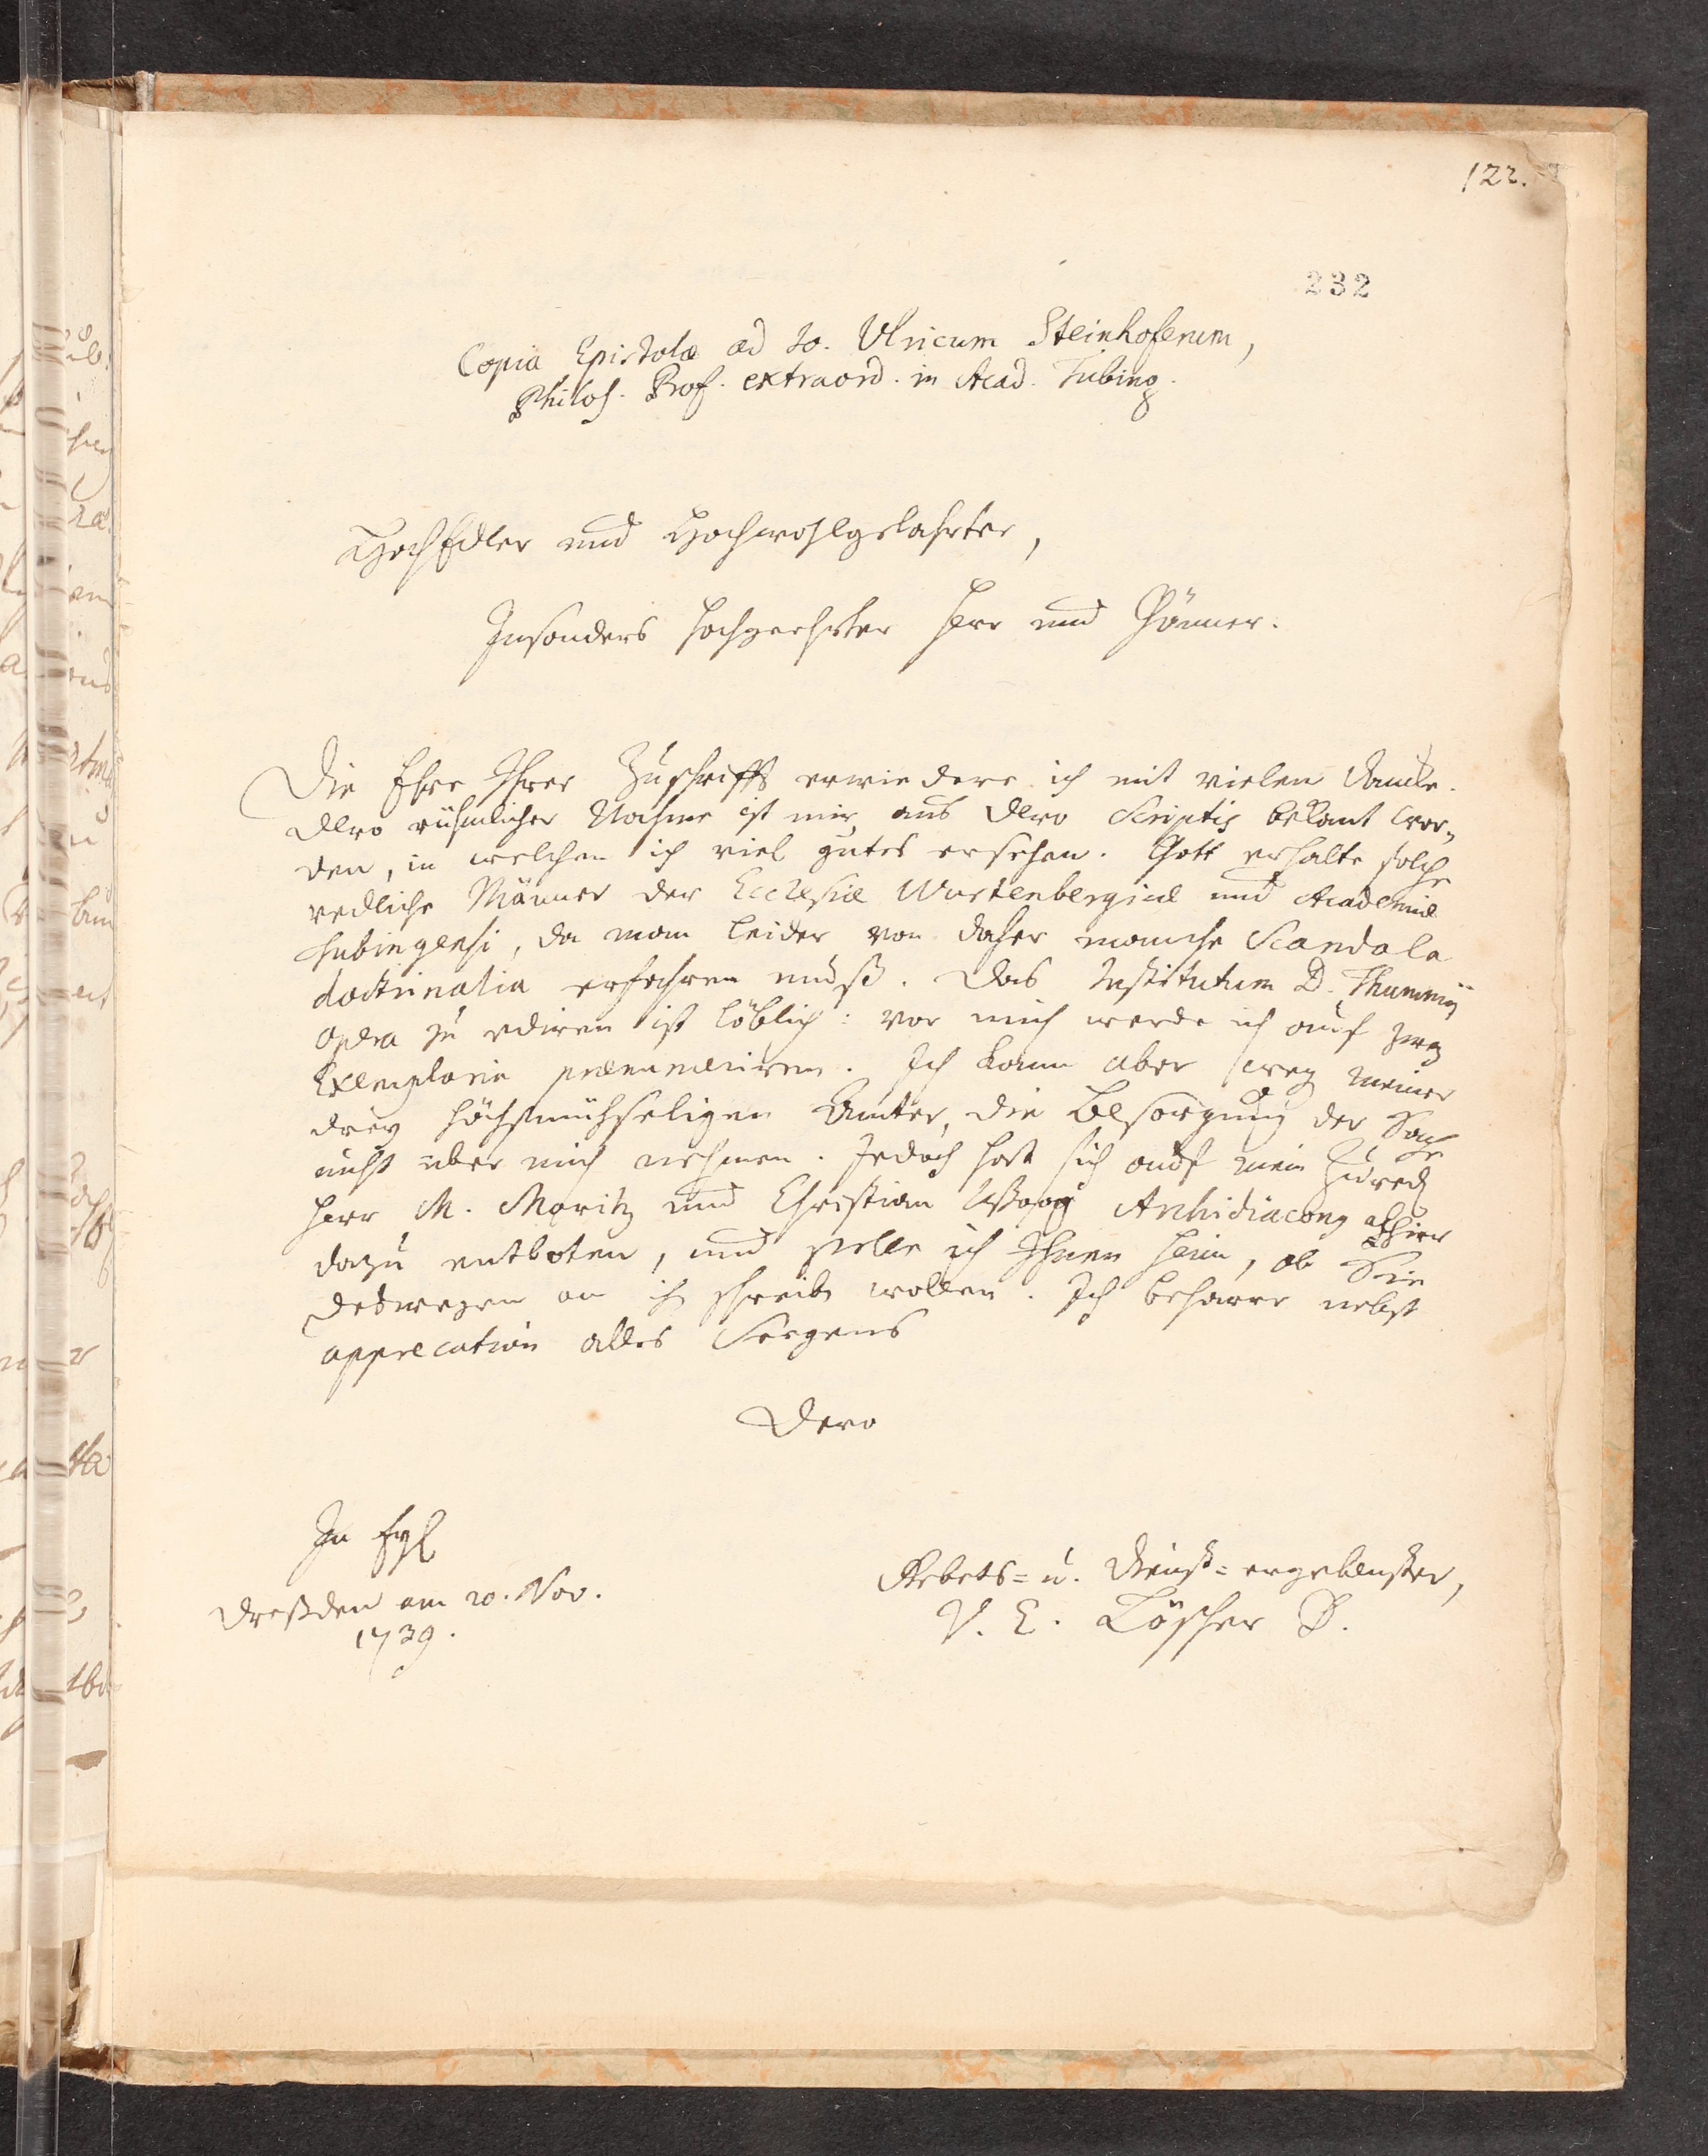 122.
232
Copia Epistolæ ad Jo. Ulricum Steinhoferum,
Philos. Prof. extraord. in Acad. Tubing.
HochEdler und Hochwohlgelahrter,
Insonders hochgeehrter Herr und Gönner.
Die Ehre Ihrer Zuschrifft erwiedere ich mit vielen Dancke.
Dero rühmlicher Nahme ist mir aus Dero Scriptis bekant wor-
den, in welchen ich viel gutes ersehen. Gott erhalte solche
redliche Männer der Ecclesiæ Wurtenbergicæ und Academiæ
Tubingensi, da man leider von daher manche Scandala
doctrinalia erfahren muß. Das Institutum D. Thummij
opera zu ediren ist löblich: vor mich werde ich auf zwey
Exemplaria prænumeriren. Ich kann aber weg meiner
drey höchstmühseligen Ämter, die Besorgung der Sache
nicht über mich nehmen. Jedoch hat sich auf mein Zured
Herr M. Moritz und Christian Archidiacong alhier
dazu entboten, und stelle ich Ihnen heim, ob Sie
deswegen an ih schreibe wollen. Ich beharre nebst
apprecation alles Seegens
Dero
In Eyl
Dreßden am 20. Nov.
1739.
Gebets= u. Dienst= ergebenster,
V. E. Löscher D.